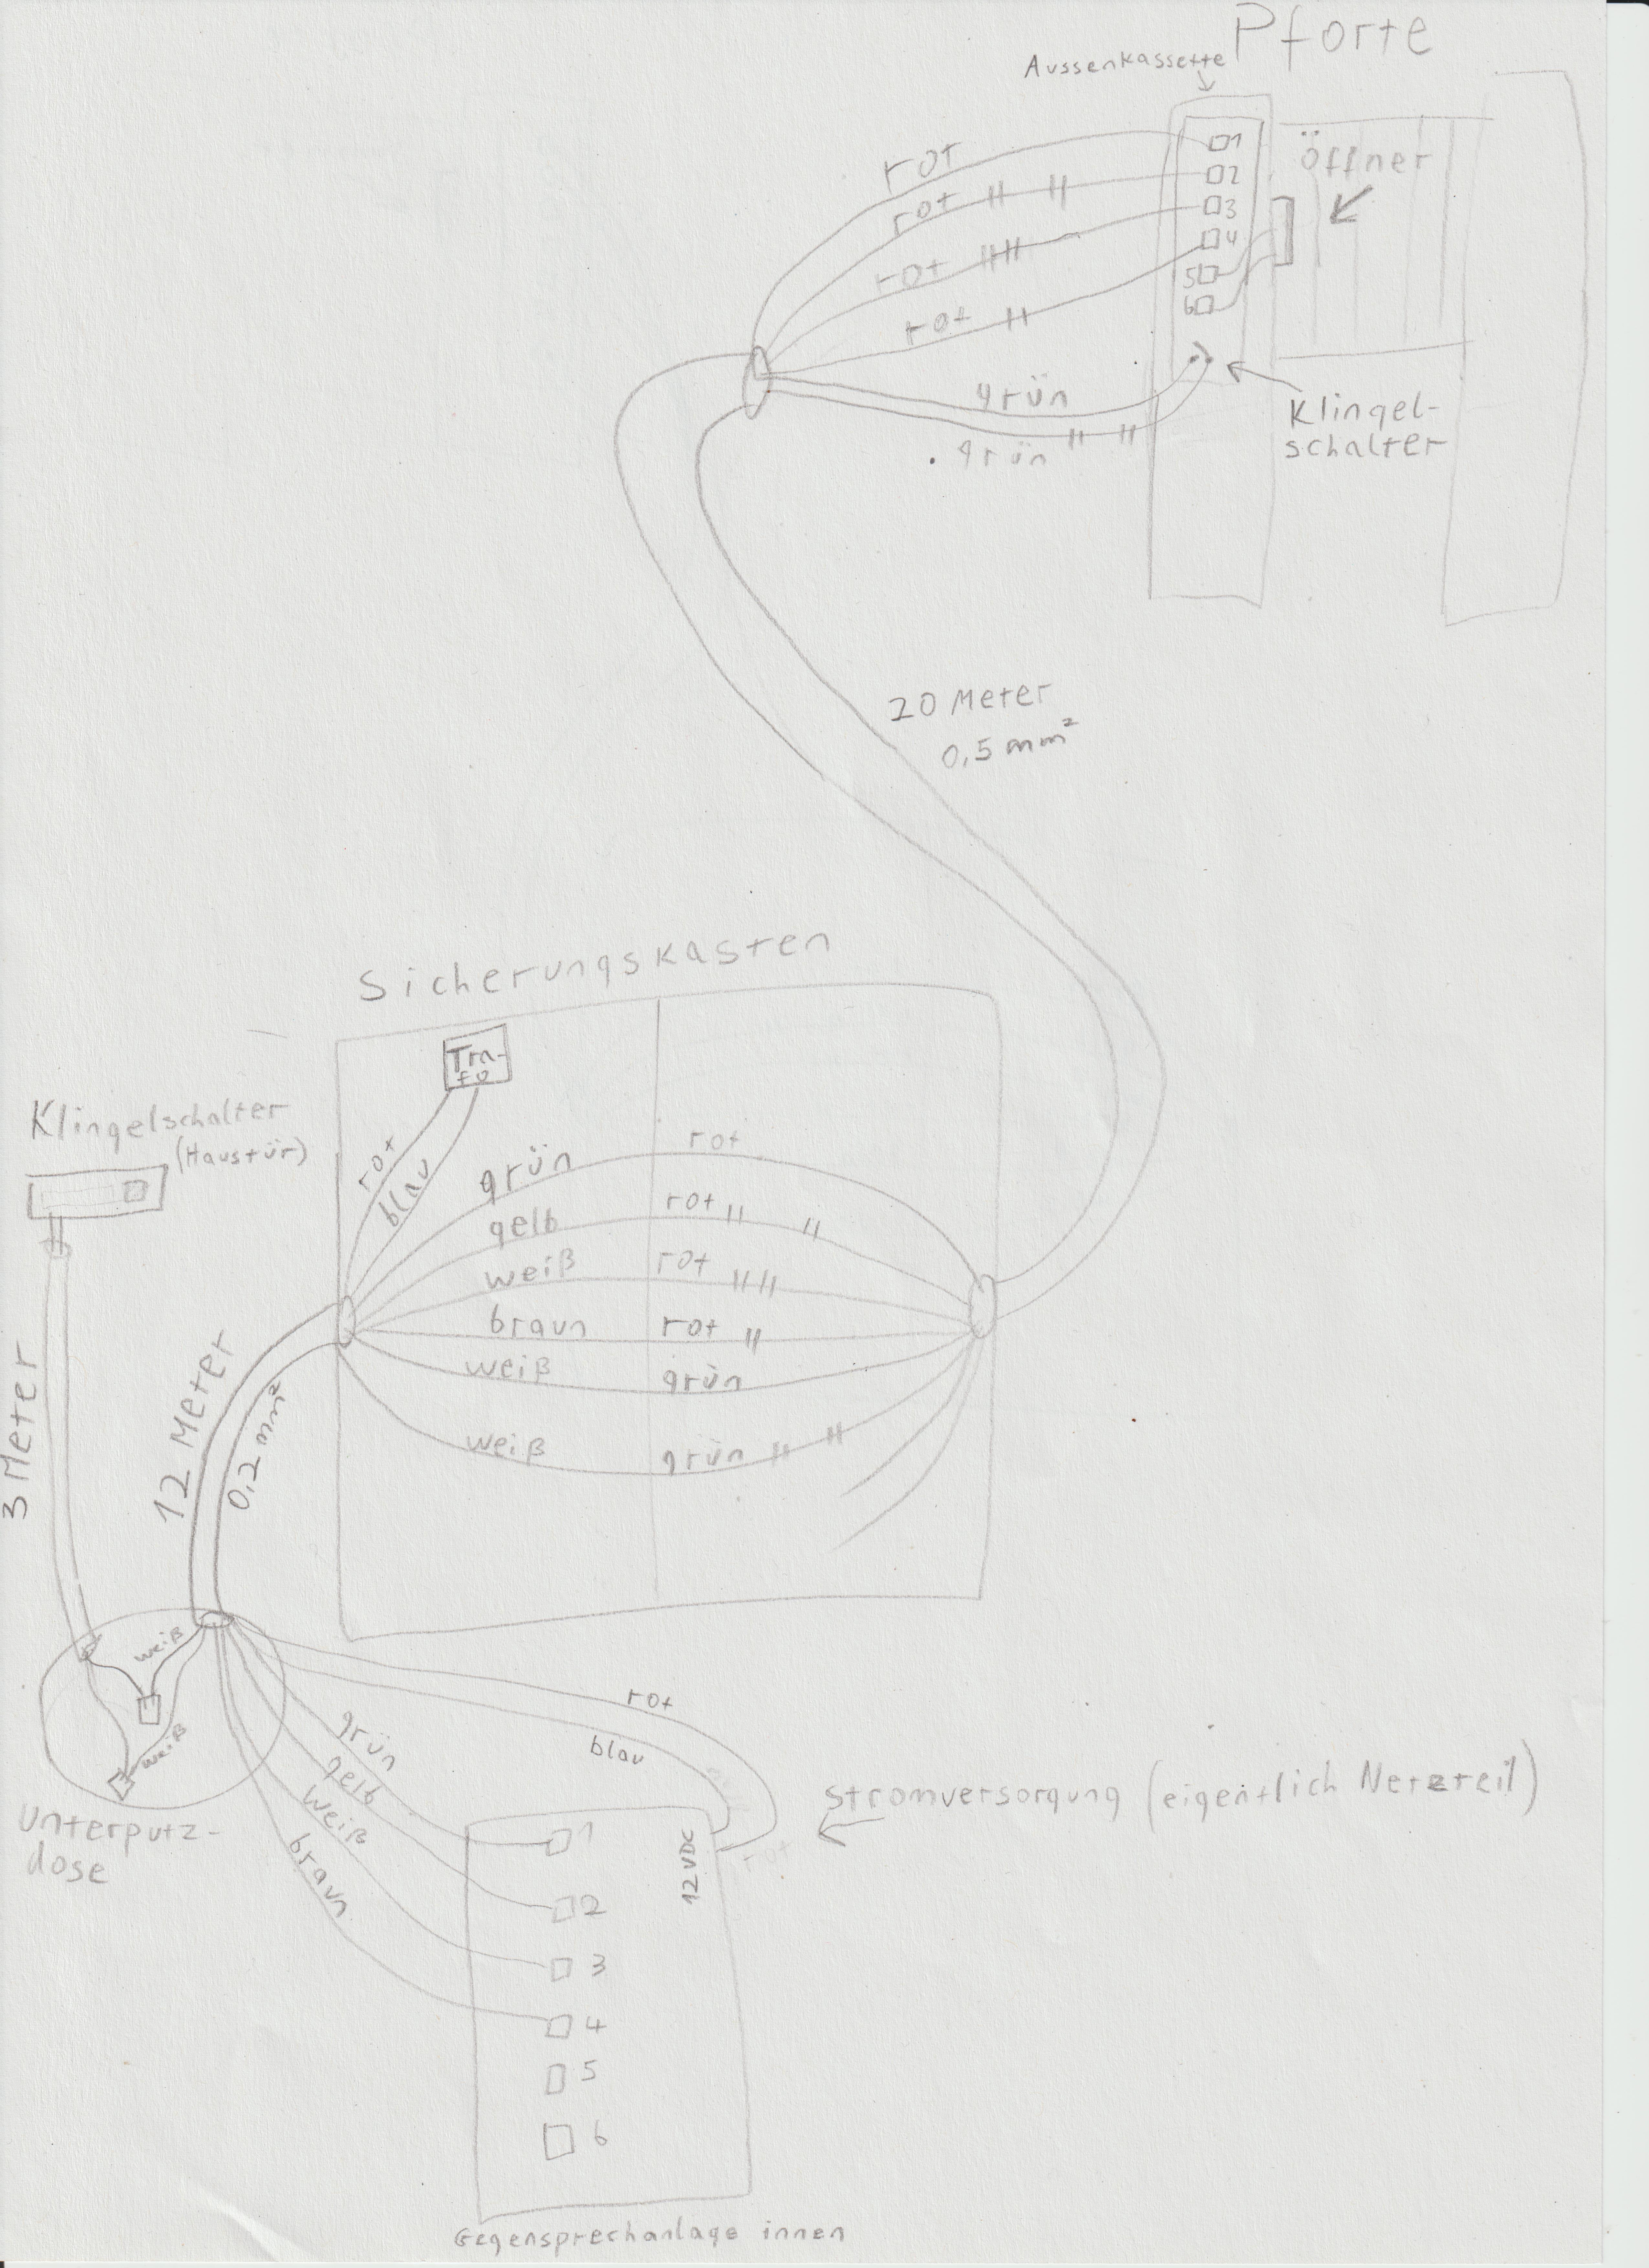 Pforte
Aussenkassette
rot
rot
rot
rot
grün
grün
1
2
3
4
5
6
Öffner
Klingel-
schalter
20 Meter
0,5 mm²
Sicherungskasten
Tra-
fo
rot
blau
grün
rot
gelb
rot
weiß
rot
braun
rot
weiß
grün
weiß
grün
Klingelschalter
(Haustür)
3 Meter
12 Meter
0,2 mm²
weiß
weiß
Unterputz-
dose
grün
gelb
weiß
braun
rot
blau
rot
Stromversorgung (eigentlich Netzteil)
12 VDC
1
2
3
4
5
6
Gegensprechanlage innen